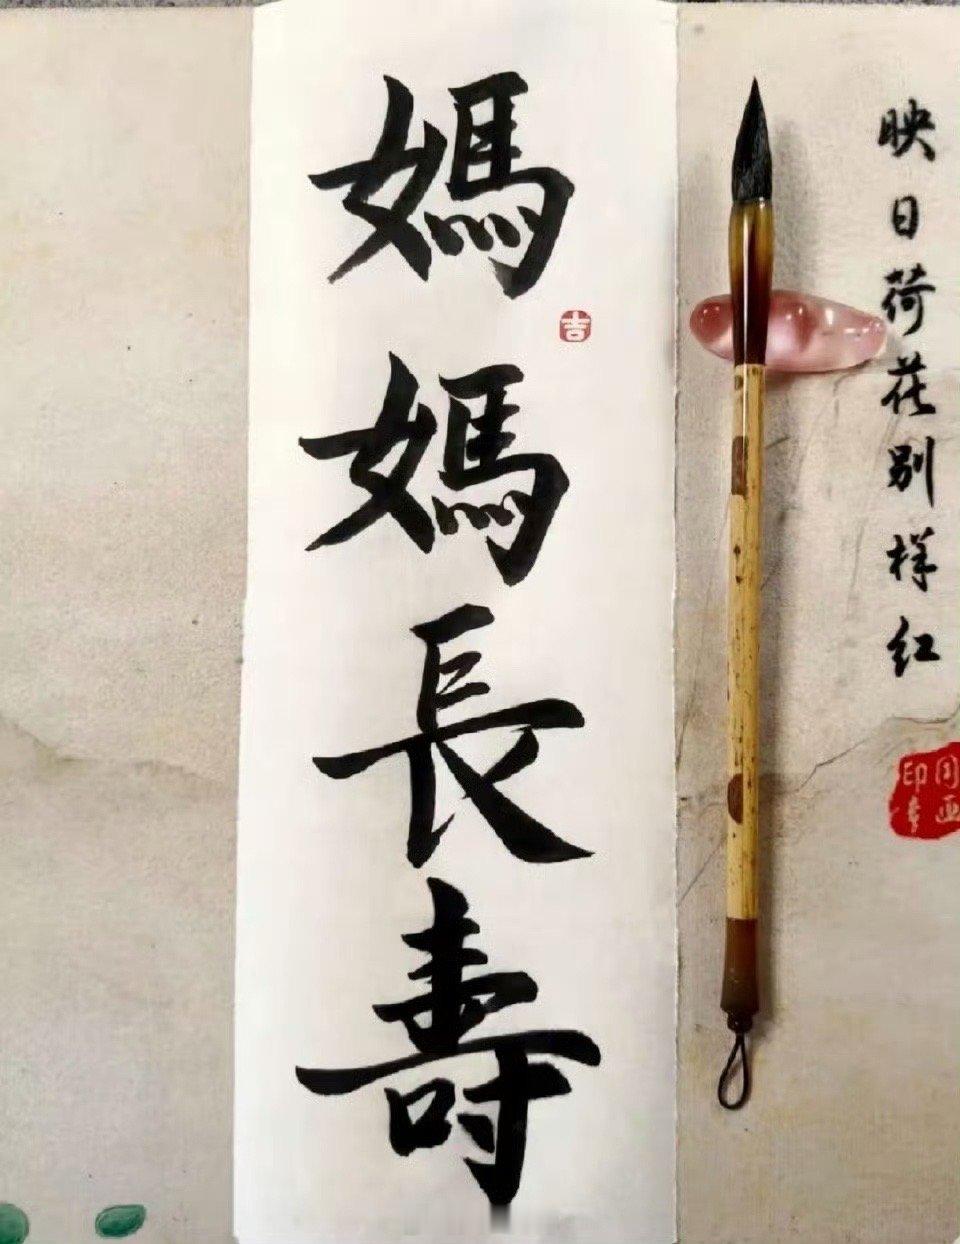 映日荷花别样红
国画
印章
媽媽長壽
吉